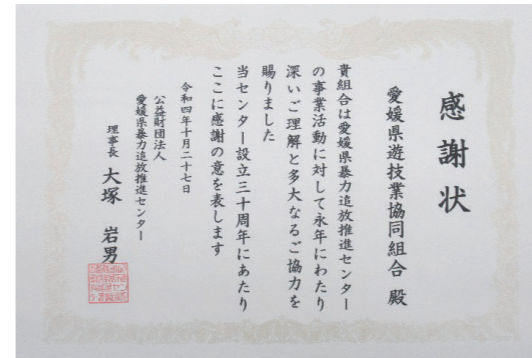 感謝状
愛媛県遊技業協同組合 殿
貴組合は愛媛県暴力追放推進センター
の事業活動に対して永年にわたり
深いご理解と多大なるご協力を
賜りました
当センター設立三十周年にあたり
ここに感謝の意を表します
令和四年十月二十七日
公益財団法人
愛媛県暴力追放推進センター
理事長 大塚 岩男